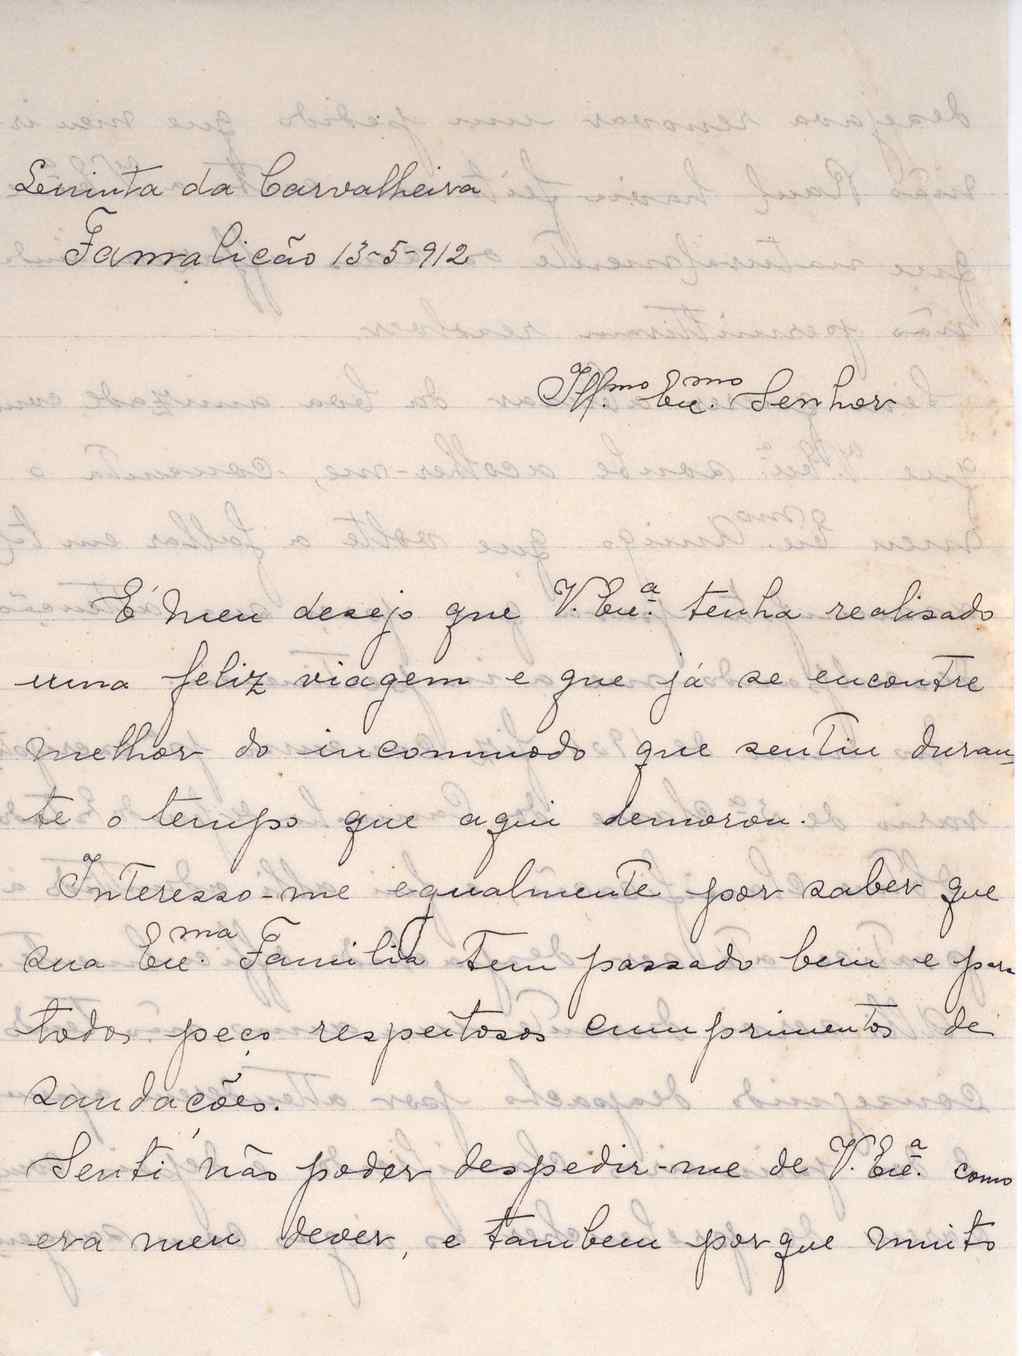 Quinta da Carvalheira
Famalicão 13-5-912
Ill.mo Ex.mo Senhor
É meu desejo que V. Ex.ª tenha realisado
uma feliz viagem e que já se encontre
melhor do incommodo que sentiu duran-
te o tempo que aqui demorou.
Interesso-me egualmente por saber que
sua Ex.ma Familia tem passado bem e para
todos peço respeitosos cumprimentos de
saudações.
Senti não poder despedir-me de V. Ex.ª como
era meu dever, e tambem porque muito